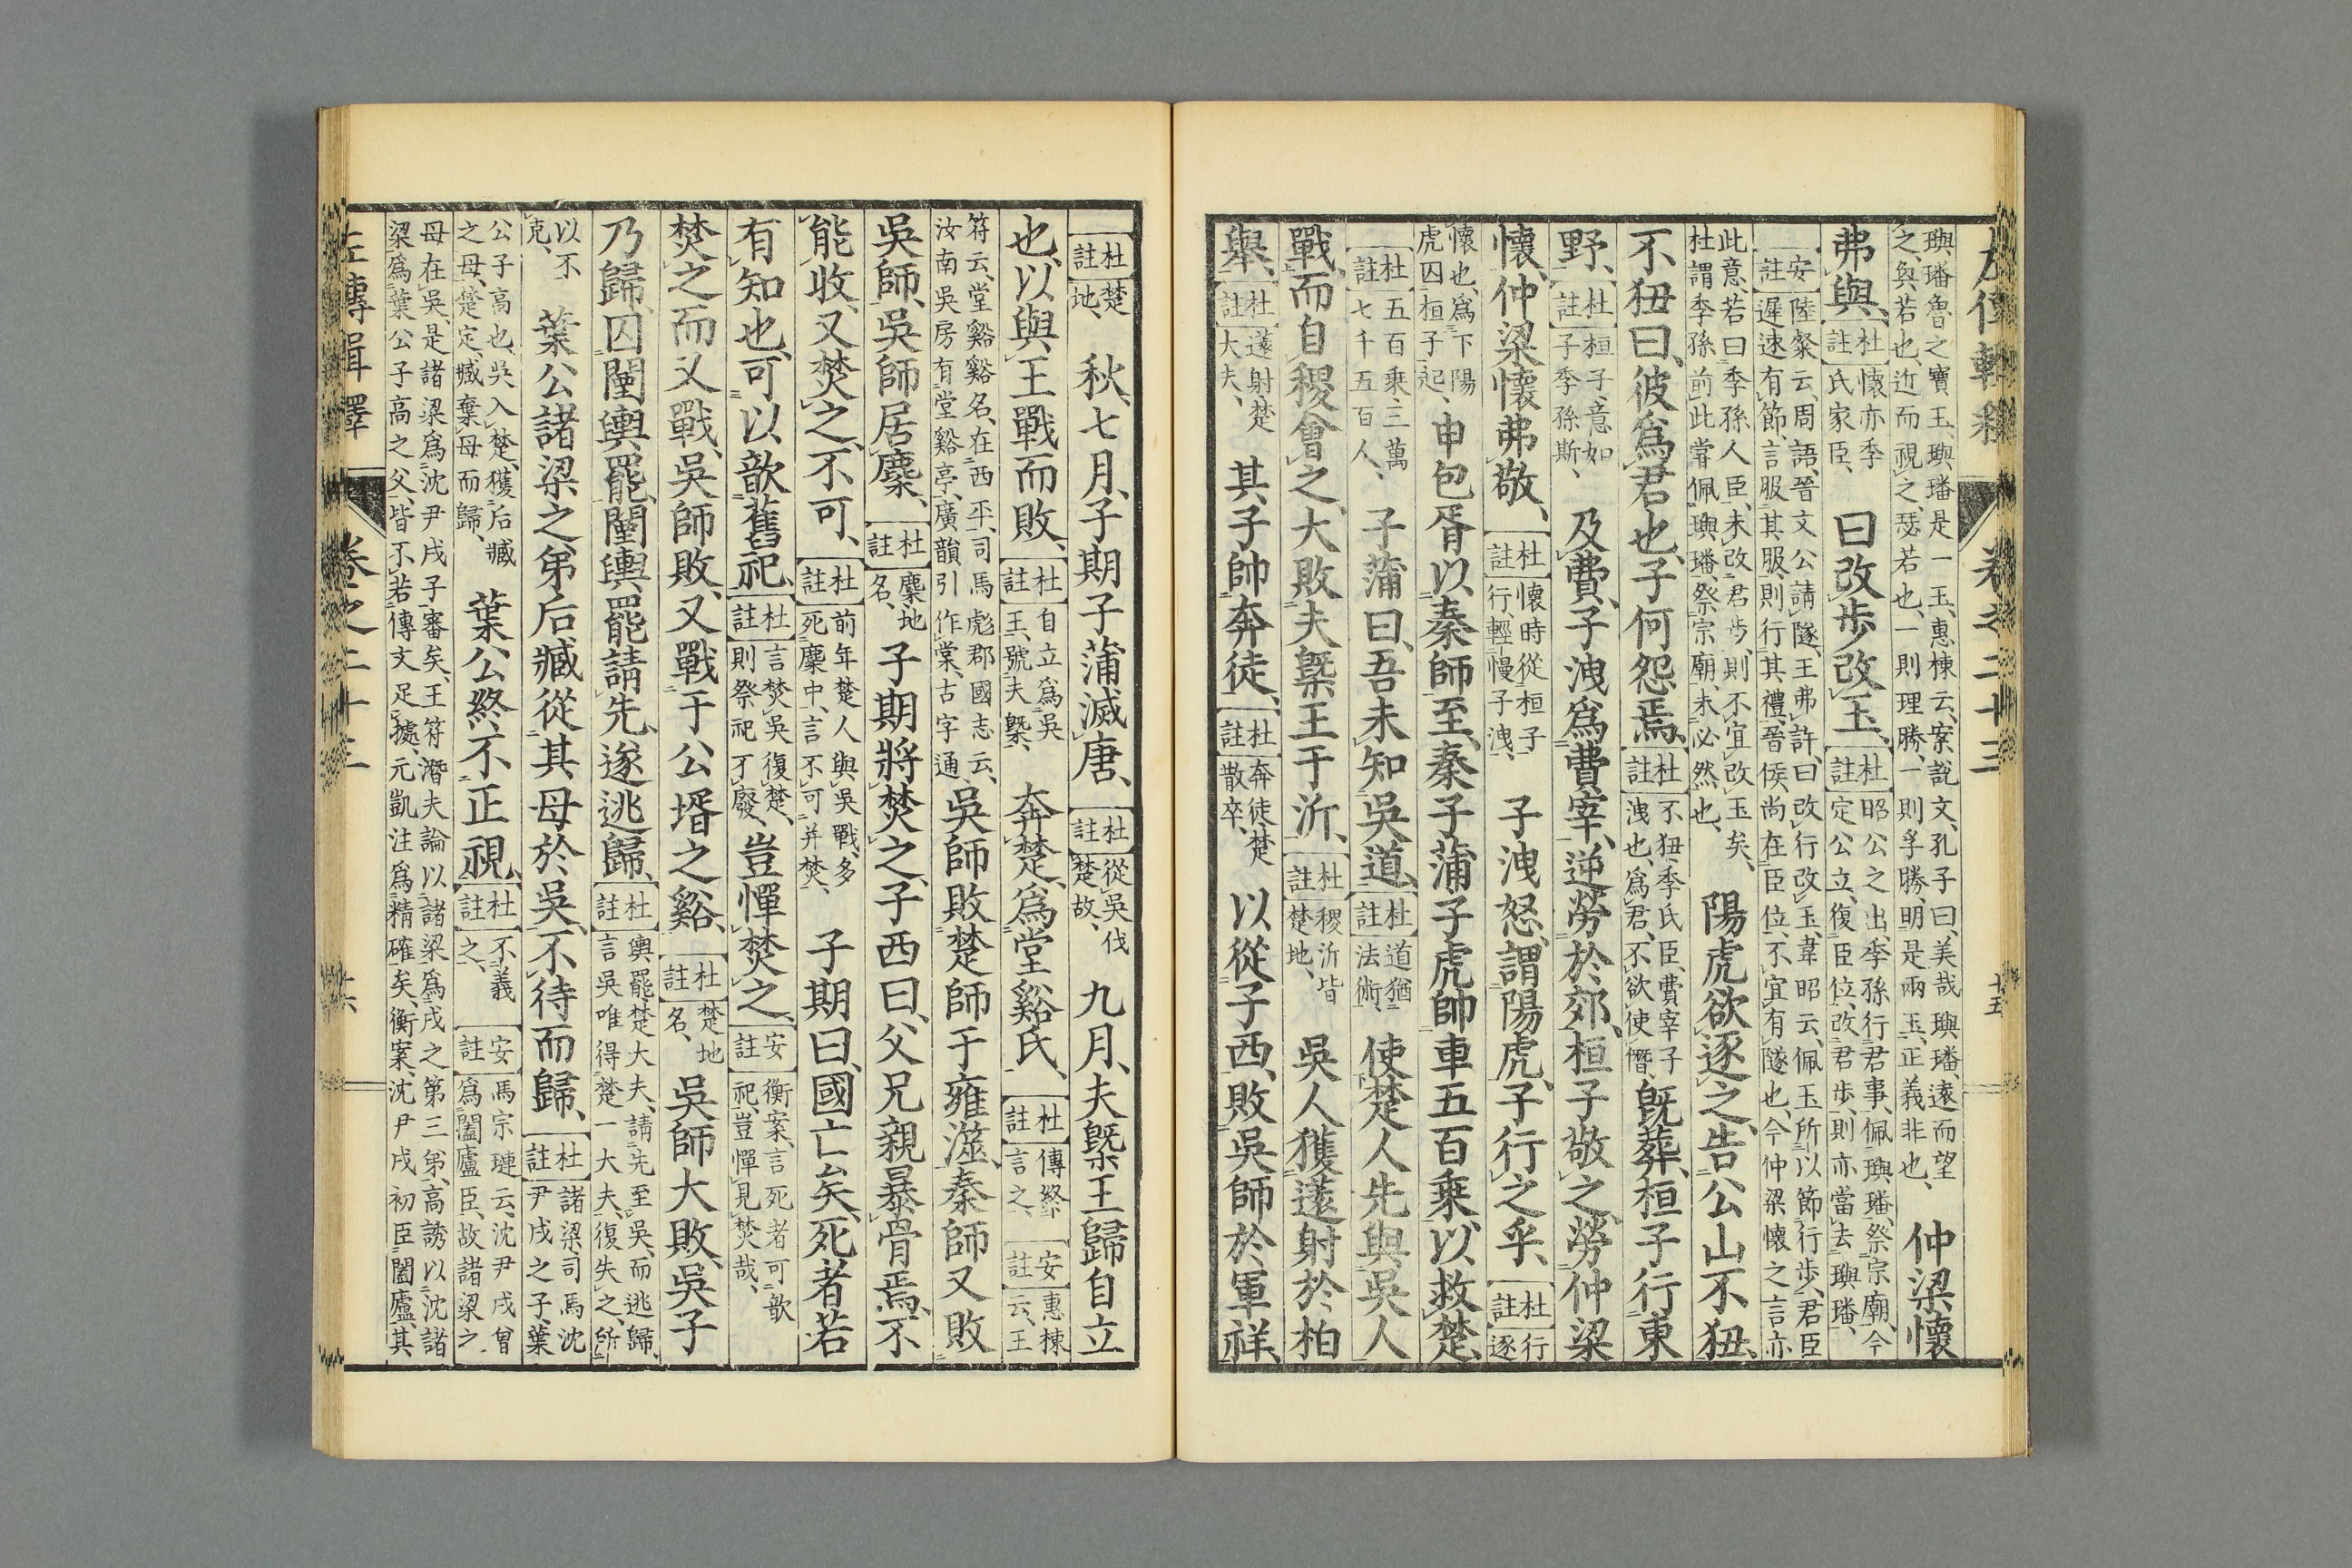 左傳輯釋　卷之二十三　十五
璵璠魯之寶玉、璵璠是一玉、惠棟云、案說文、孔子曰、美哉璵璠、遠而望
之、奐若也、近而視之、瑟若也、一則理勝、一則孚勝、明是兩玉、正義非也、仲梁懷
弗與、杜註懷亦季氏家臣、曰改步改玉、杜註昭公之出、季孫行君事、佩璵璠、祭宗廟、今定公立、復臣位、改君步、則亦當去璵璠、
安註陸粲云、周語、晉文公請隧、王弗許、曰改行改玉、韋昭云、佩玉所以節行步、君臣遲速有節、言服其服、則行其禮、晉侯尚在臣位、不宜有隧也、今仲梁懷之言亦
此意、若曰季孫人臣、未改君步、則不宜改玉矣、杜謂季孫前此嘗佩璵璠、祭宗廟、未必然也、陽虎欲逐之、告公山不狃、
不狃曰、彼爲君也、子何怨焉、杜註不狃、季氏臣、費宰子洩也、爲君、不欲使僭、既葬、桓子行東
野、杜註桓子、意如子季孫斯、及費、子洩爲費宰、逆勞於郊、桓子敬之、勞仲梁
懷、仲梁懷弗敬、杜註懷時從桓子行、輕慢子洩、子洩怒、謂陽虎、子行之乎、杜註行逐
懷也、爲下陽虎囚桓子起、申包胥以秦師至、秦子蒲子虎帥車五百乘以救楚、
杜註五百乘三萬七千五百人、子蒲曰、吾未知吳道、杜註道猶法術、使楚人先與吳人
戰、而自稷會之、大敗夫槩王于沂、杜註稷沂皆楚地、吳人獲薳射於柏
舉、杜註薳射楚大夫、其子帥奔徒、杜註奔徒楚散卒、以從子西、敗吳師於軍祥、
杜註楚地、秋七月、子期子蒲滅唐、杜註從吳伐楚故、九月、夫槩王歸自立
也、以與王戰而敗、杜註自立爲吳王、號夫槩、奔楚、爲堂谿氏、杜註傳終言之、安註惠棟云、王
符云、堂谿谿名、在西平、司馬彪郡國志云、汝南吳房有堂谿亭、廣韻引作棠、古字通、吳師敗楚師于雍澨、秦師又敗
吳師、吳師居麇、杜註麇地名、子期將焚之、子西曰、父兄親暴骨焉、不
能收、又焚之、不可、杜註前年楚人與吳戰、多死麇中、言不可并焚、子期曰、國亡矣、死者若
有知也、可以歆舊祀、杜註言焚吳復楚、則祭祀不廢、豈憚焚之、安註衡案、言死者可歆祀、豈憚見焚哉、
焚之而又戰、吳師敗、又戰于公壻之谿、杜註楚地名、吳師大敗、吳子
乃歸、囚闉輿罷、闉輿罷請先、遂逃歸、杜註輿罷、楚大夫、請先至吳、而逃歸、言吳唯得楚一大夫、復失之、所
以不克、葉公諸梁之弟后臧從其母於吳、不待而歸、杜註諸梁、司馬沈尹戌之子、葉
公子高也、吳入楚、獲后臧之母、楚定、臧棄母而歸、葉公終不正視、杜註不義之、安註馬宗璉云、沈尹戌曾爲闔廬臣、故諸梁之
母在吳、是諸梁爲沈尹戌子審矣、王符潛夫論以諸梁爲戌之第三弟、高誘以沈諸
梁爲葉公子高之父、皆不若傳文足據、元凱注爲精確矣、衡案、沈尹戌初臣闔廬、其
左傳輯釋　卷之二十三　十六